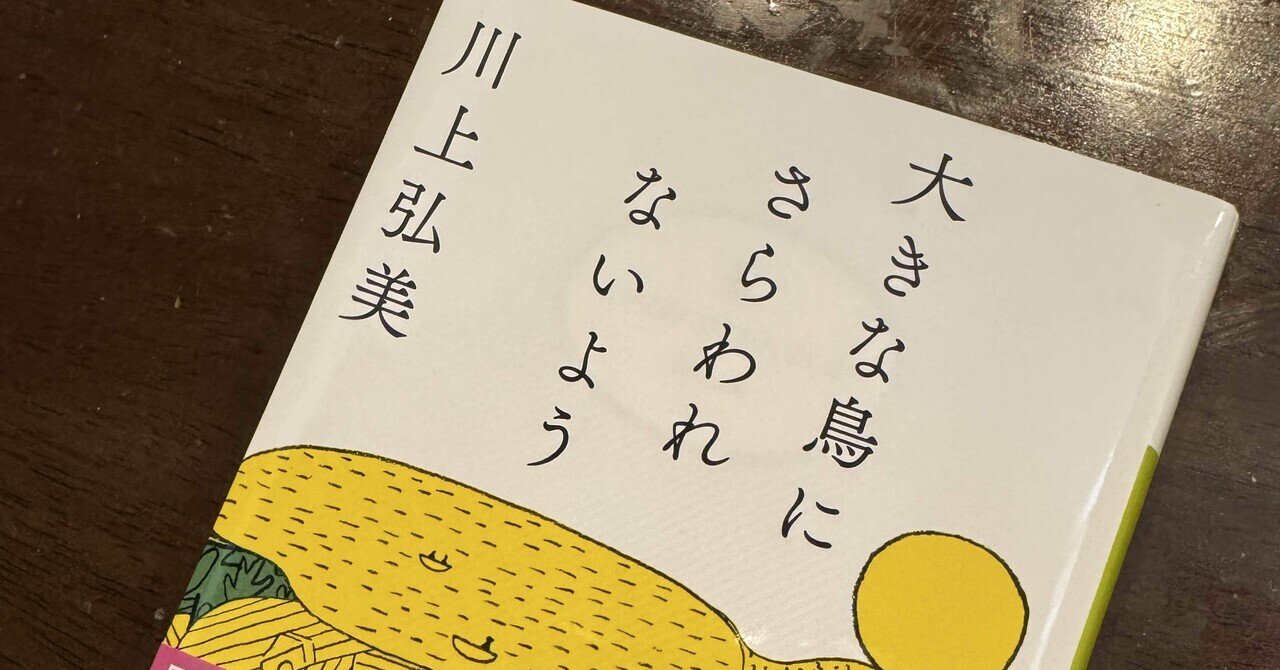 大きな鳥に
さらわれ
ないよう
川上弘美